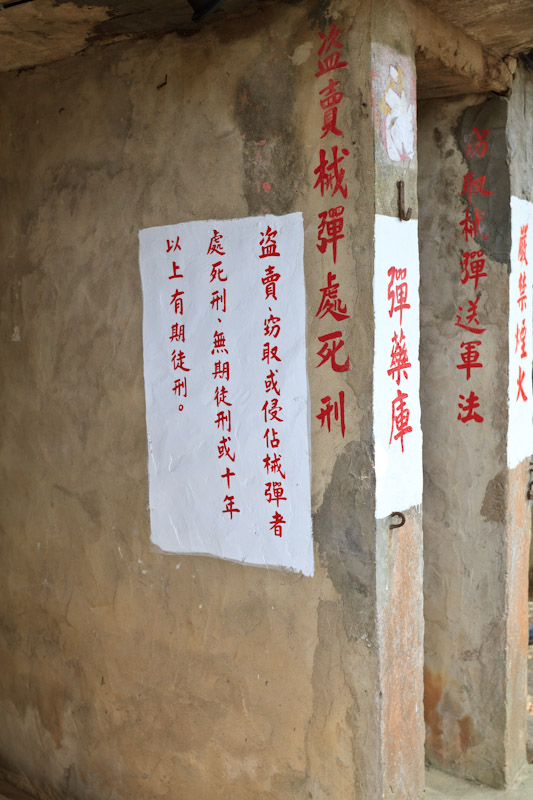 嚴禁煙火
窃取械彈送軍法
彈藥庫
盜賣械彈處死刑
盜賣、窃取或侵佔械彈者
處死刑、無期徒刑或十年
以上有期徒刑。